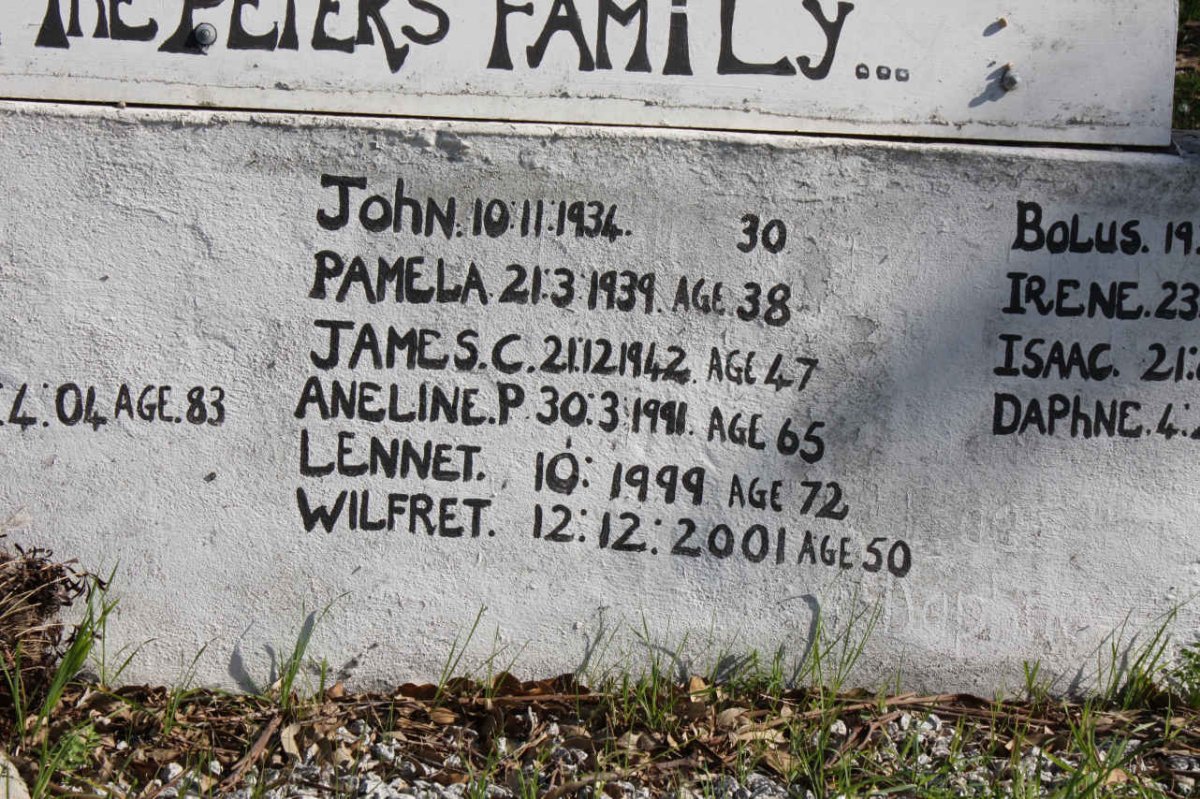 THE PETERS FAMiLy...
John. 10:11:1934. 30
PAMELA. 21:3:1939. AGE 38
JAMES.C. 21:12 1942. AGE 47
ANELINE.P. 30:3:1991. AGE 65
LENNET. 10: 1999 AGE 72
WILFRET. 12:12:2001 AGE 50
4:04 AGE.83
BOLUS. 19
IRENE. 23
ISAAC. 21:
DAPhNE. 4: